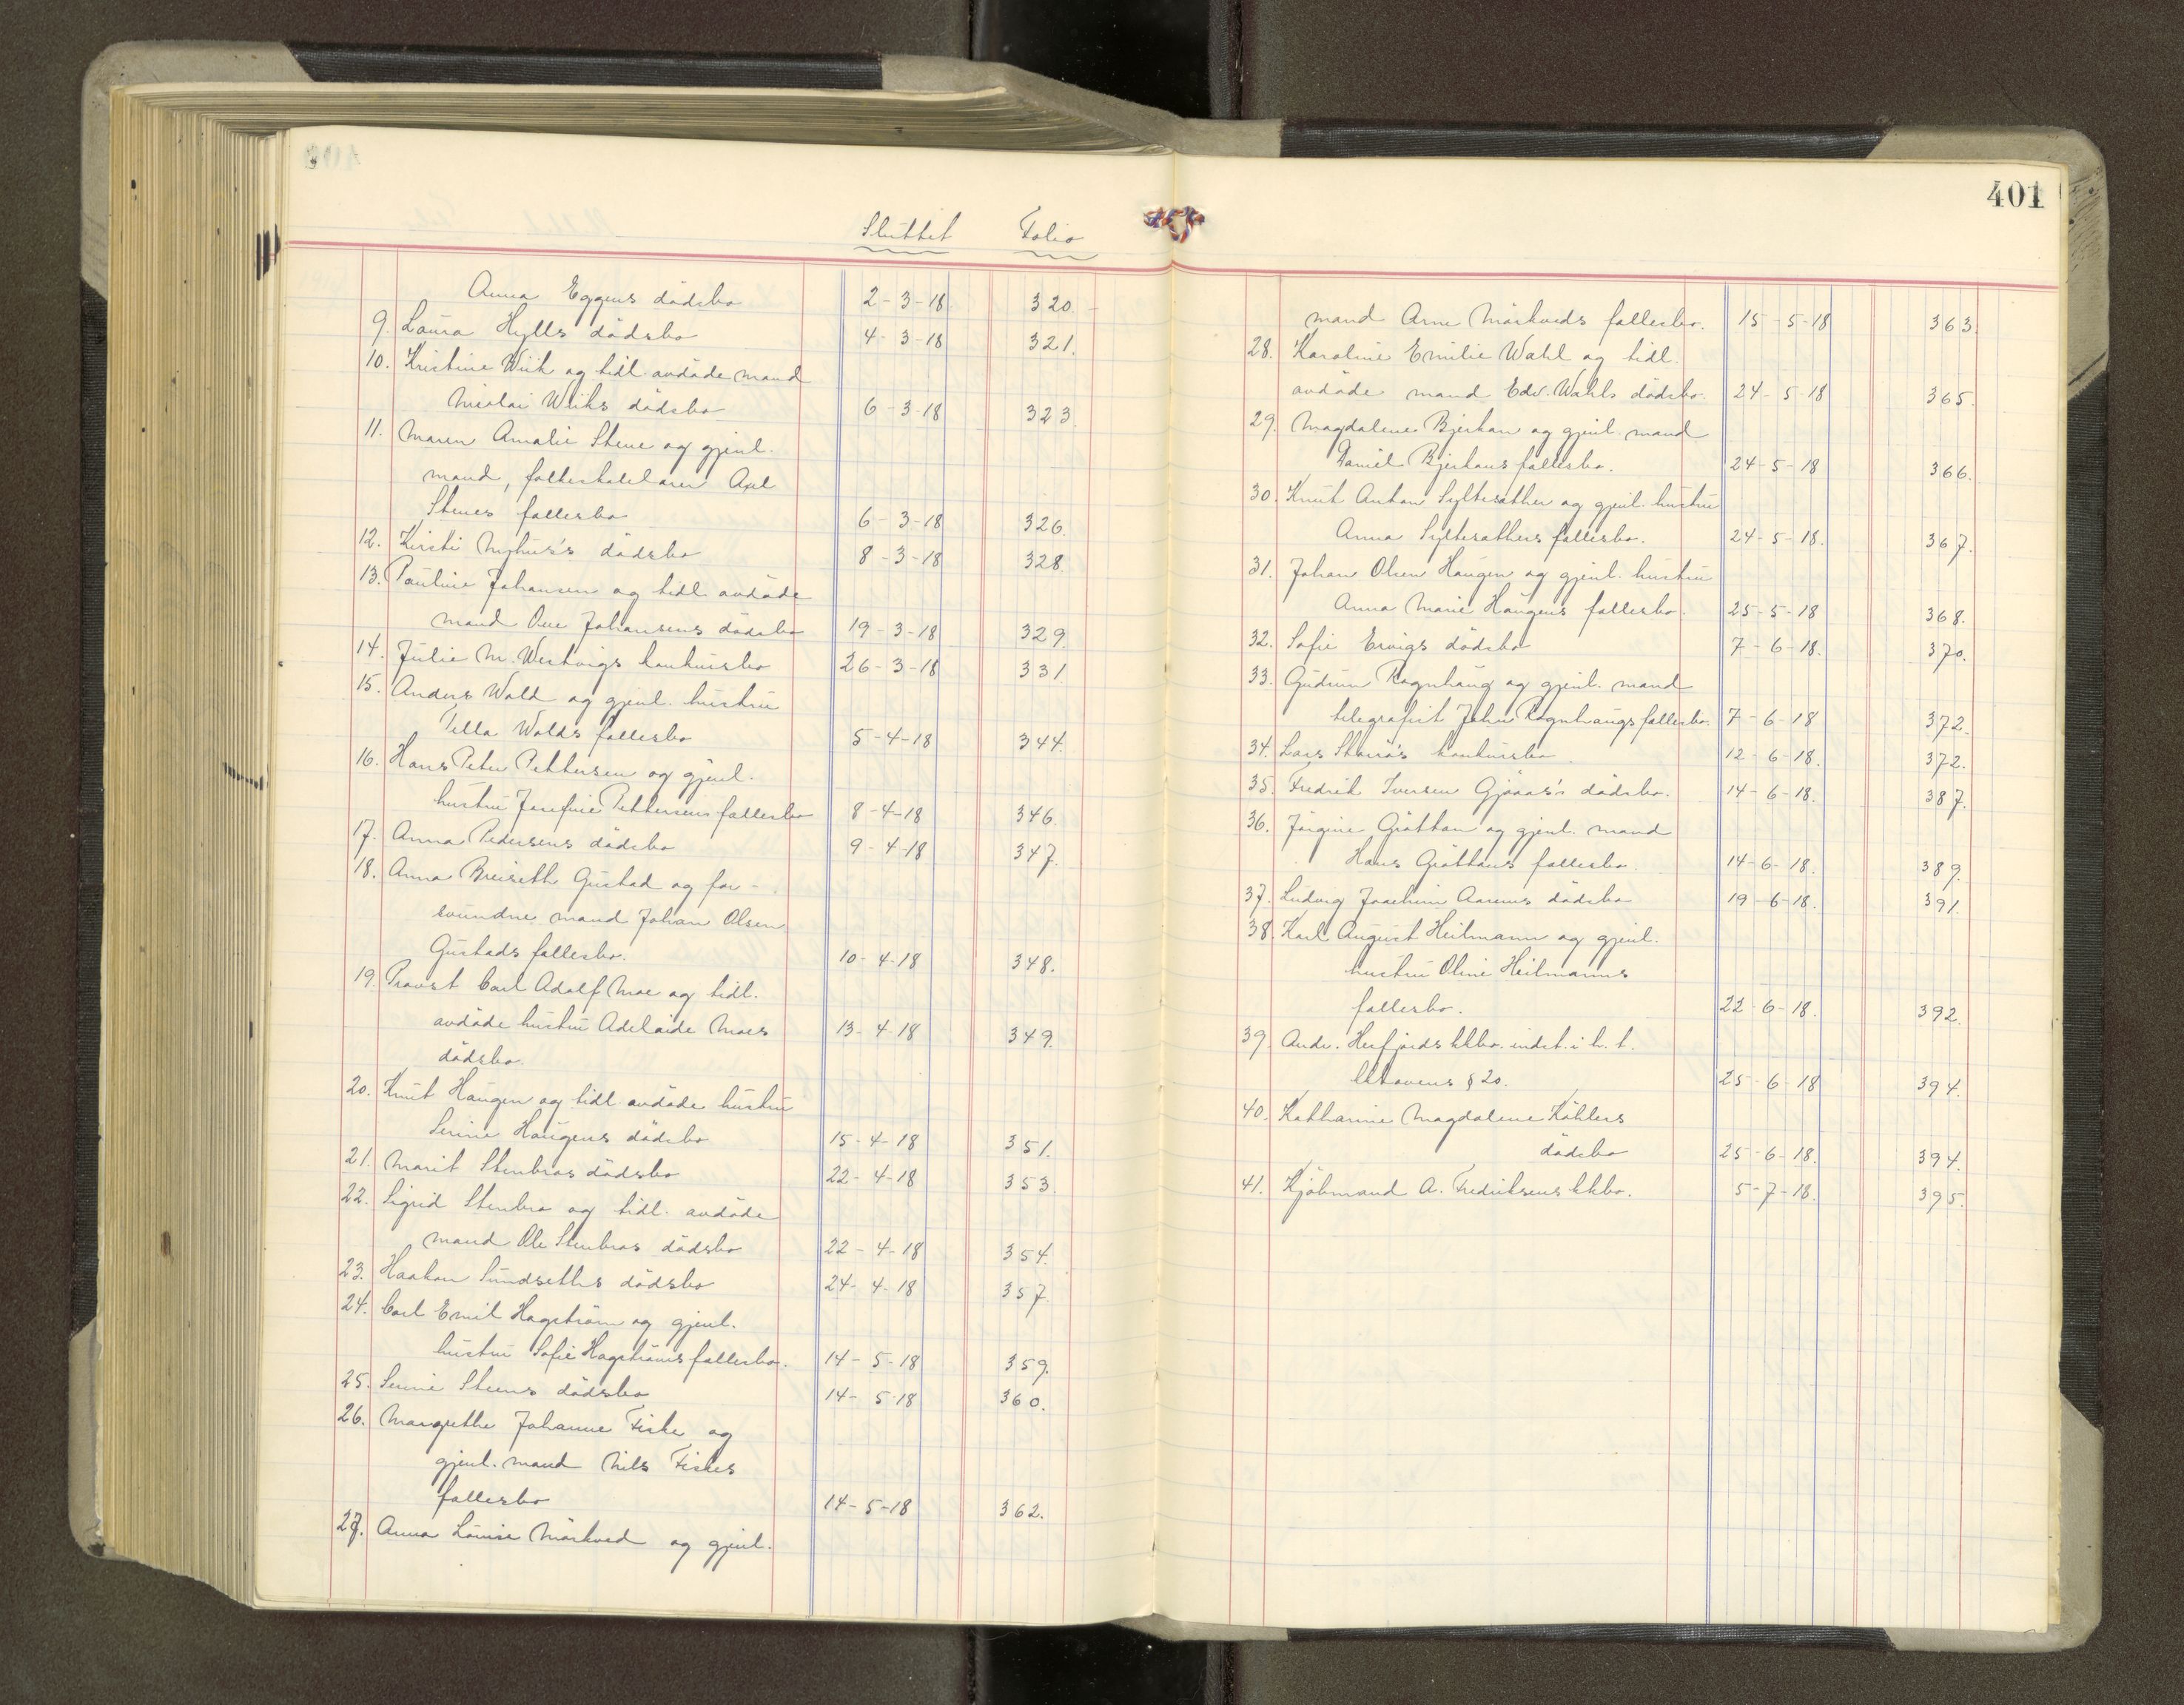 Sluttet Folio
Anna Eggens dödsbo 2-3-18 320.
9. Laura Hylls dödsbo 4-3-18 321.
10. Kristine Wiik og tidl. avdöde mand
Nicolai Wiiks dödsbo 6-3-18 323.
11. Maren Amalie Stene og gjenl.
mand, Axel
Stenes fællesbo 6-3-18 326.
12. Kirsti Myhus's dödsbo 8-3-18 328.
13. Pauline Johansen og tidl. avdöde
mand Ove Johansens dödsbo 19-3-18 329.
14. Julie M. Westvigs konkursbo 26-3-18 331.
15. Anders Wold og gjenl. hustru
Tella Wolds fællesbo 5-4-18 344.
16. Hans Peter Pettersen og gjenl.
hustru Josefine Pettersens fællesbo 8-4-18 346.
17. Anna Pedersens dödsbo 9-4-18 347.
18. Anna Breiseth Gustad og for-
svundne mand Johan Olsen
Gustads fællesbo. 10-4-18 348.
19. Provst Carl Adolf Moe og tidl.
avdöde hustru Adelaide Moes 13-4-18 349.
dödsbo.
20. Knut Haugen og tidl. avdöde hustru
Serine Haugens dödsbo 15-4-18 351.
21. Marit Stenbros dödsbo 22-4-18 353.
22. Sigrid Stenbro og tidl. avdöde
mand Ole Stenbros dödsbo 22-4-18 354.
23. Haakon Sundseths dödsbo 24-4-18 357.
24. Carl Emil Hagström og gjenl.
hustru Sofie Hagströms fællesbo. 14-5-18 359.
25. Serine Steens dödsbo 14-5-18 360.
26. Margrethe Johanne Fiske og
gjenl. mand Nils Fiskes
fællesbo 14-5-18 362.
27. Anna Louise Mörkved og gjenl.
401
mand Arne Mörkveds fællesbo. 15-5-18 363.
28. Karoline Emilie Wahl og tidl.
avdöde mand Edv. Wahls dödsbo. 24-5-18 365.
29. Magdalene Bjerkan og gjenl. mand
Daniel Bjerkans fællesbo. 24-5-18 366.
30. Knut Anton Syltesæther og gjenl. hustru
Anna Syltesæthers fællesbo. 24-5-18. 367.
31. Johan Olsen Haugen og gjenl. hustru
Anna Marie Haugens fællesbo. 25-5-18 368.
32. Sofie Ervigs dödsbo 7-6-18. 370.
33. Gudrun Rognhaug og gjenl. mand
telegrafist John Rognhaugs fællesbo. 7-6-18 372.
34. Lars konkursbo. 12-6-18. 372.
35. Fredrik Iversen Gjöaas's dödsbo. 14-6-18. 387.
36. Jörgine Gröttan og gjenl. mand
Hans Gröttans fællesbo. 14-6-18. 389.
37. Ludvig Joachim Aarums dödsbo 19-6-18. 391.
38. Karl August Heilmann og gjenl.
hustru Oline Heilmanns
fællesbo. 22-6-18. 392.
39. Andr. Herfjords kkbo. indst. i h. t.
kklovens § 20. 25-6-18 394.
40. Katharine Magdalene Köhlers
dödsbo 25-6-18. 394.
41. Kjöbmand A. Fredriksens kkbo. 5-7-18. 395.